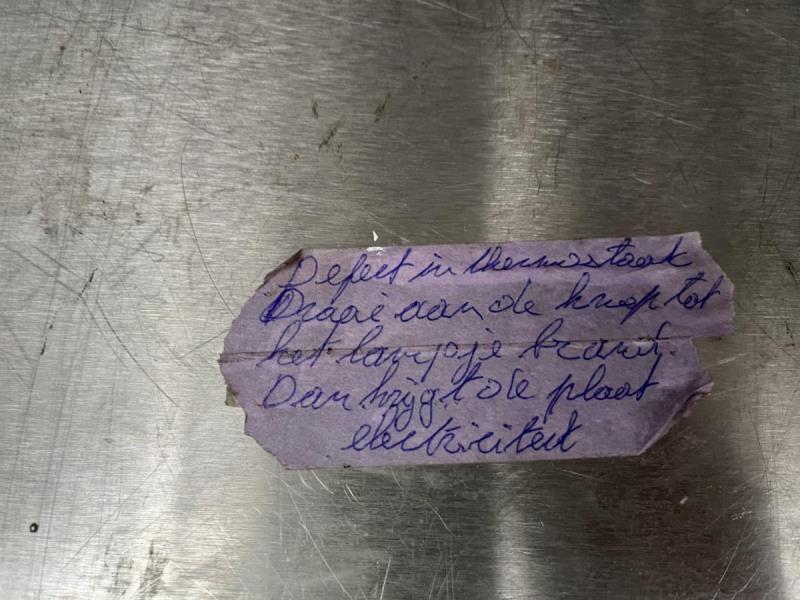 Defect in thermostaak
Draai aan de knop tot
het lampje brand.
Dan krijgt de plaat
electriciteit